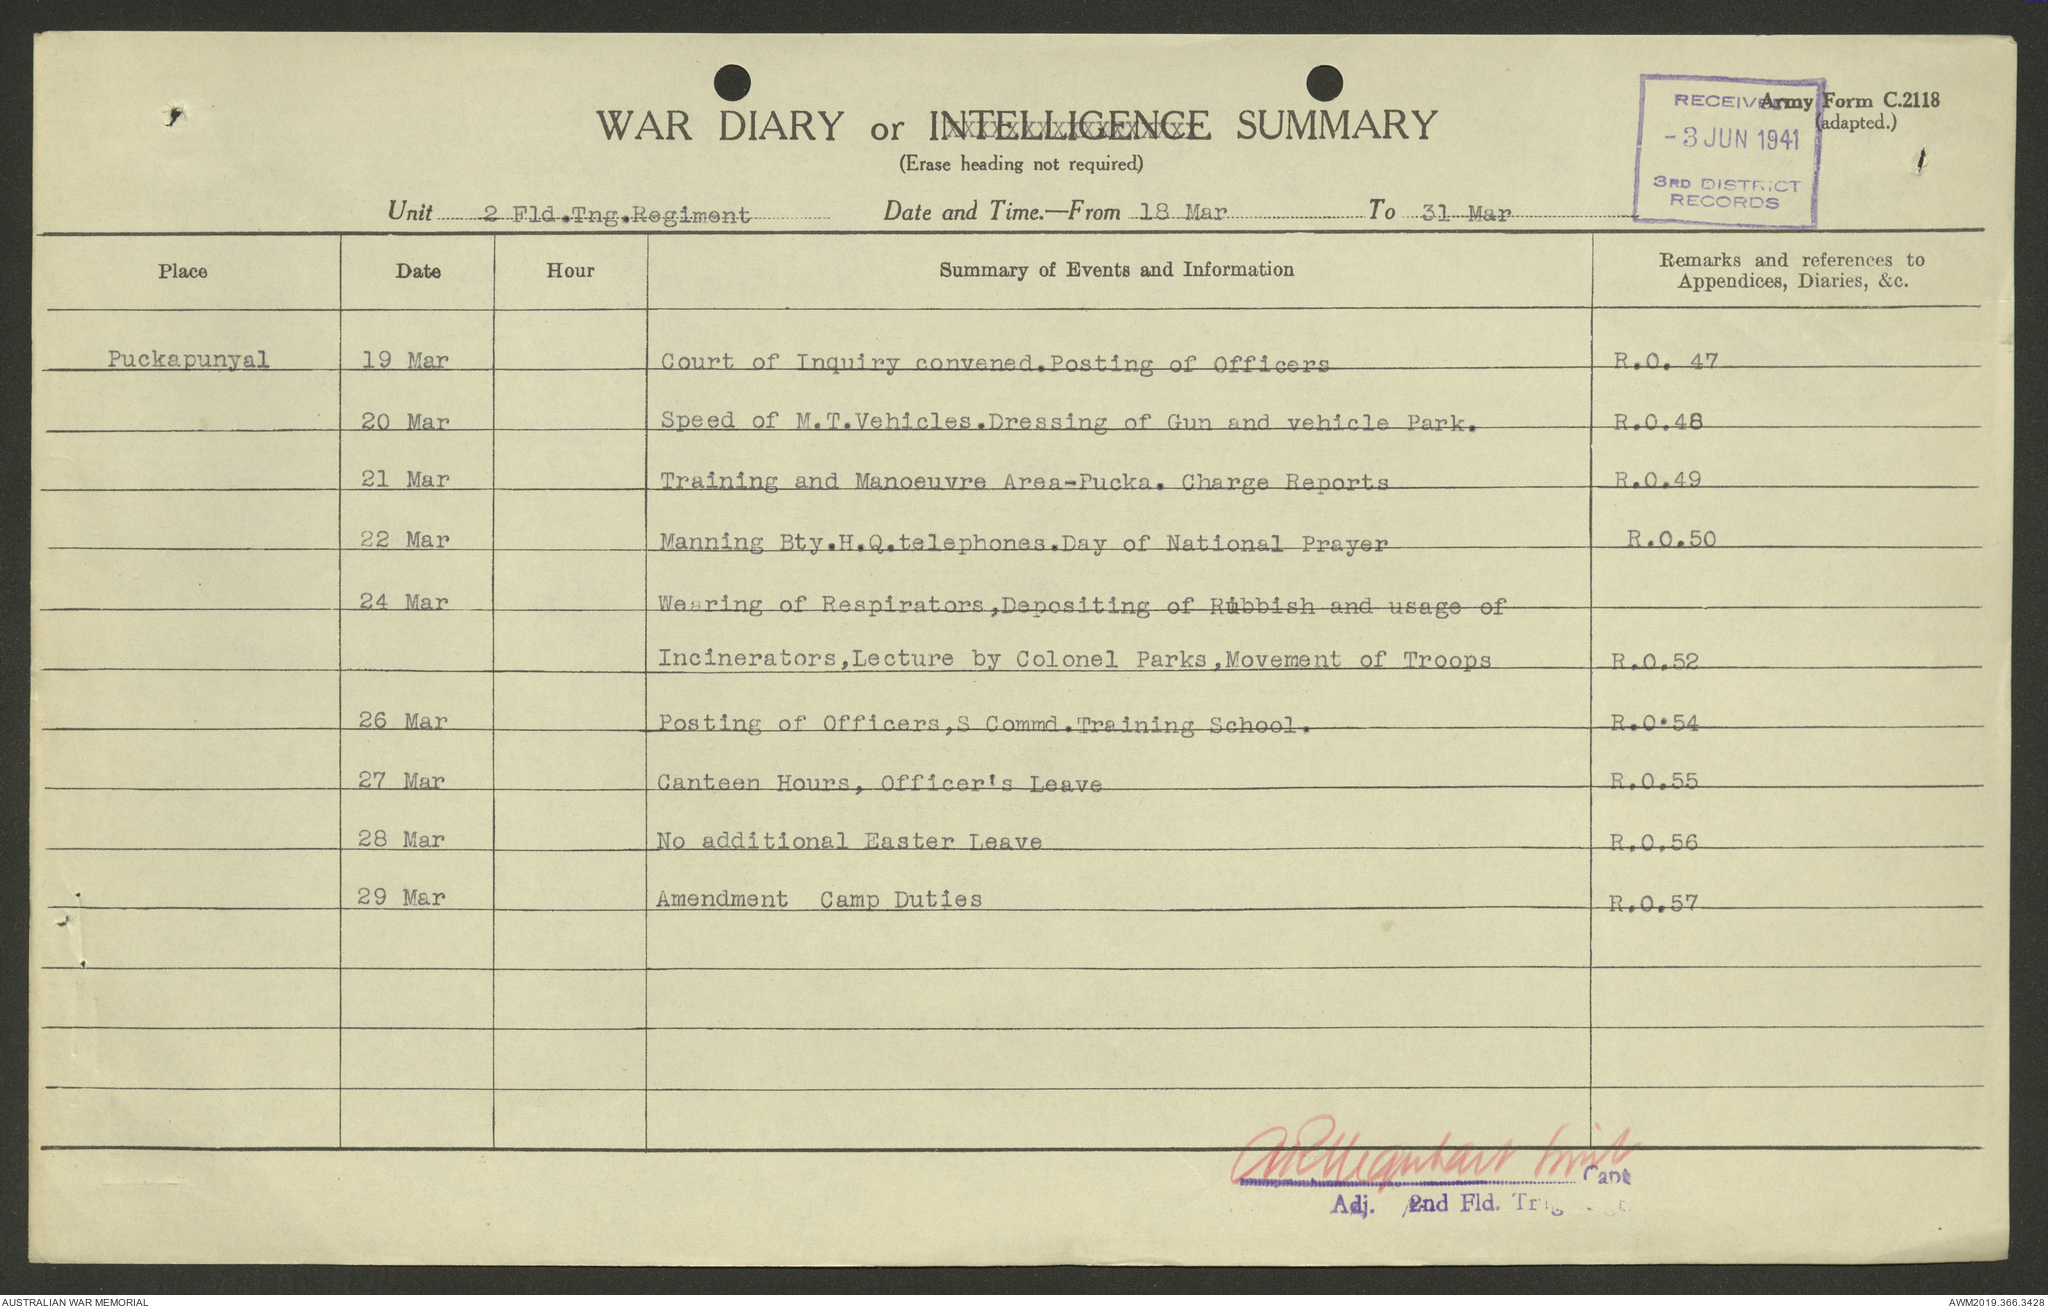 RECEIVED
- 3 JUN 1941
3RD DISTRICT
RECORDS
Army Form C.2118
(adapted.)
WAR DIARY or INTELLIGENCE SUMMARY
(Erase heading not required)
Unit 2 Fld.Tng.Regiment Date and Time.—From 18 Mar To 31 Mar
Place Date Hour Summary of Events and Information Remarks and references to
Appendices, Diaries, &c.
Puckapunyal 19 Mar Court of Inquiry convened.Posting of Officers R.O. 47
20 Mar Speed of M.T.Vehicles.Dressing of Gun and vehicle Park. R.O.48
21 Mar Training and Manoeuvre Area-Pucka. Charge Reports R.O.49
22 Mar Manning Bty.H.Q.telephones.Day of National Prayer R.O.50
24 Mar Wearing of Respirators,Depositing of Rubbish and usage of
Incinerators,Lecture by Colonel Parks,Movement of Troops R.O.52
26 Mar Posting of Officers,S Commd.Training School. R.O.54
27 Mar Canteen Hours, Officer's Leave R.O.55
28 Mar No additional Easter Leave R.O.56
29 Mar Amendment Camp Duties R.O.57
Capt
Adj. 2nd Fld. Trng
AUSTRALIAN WAR MEMORIAL
AWM2019.366.3428